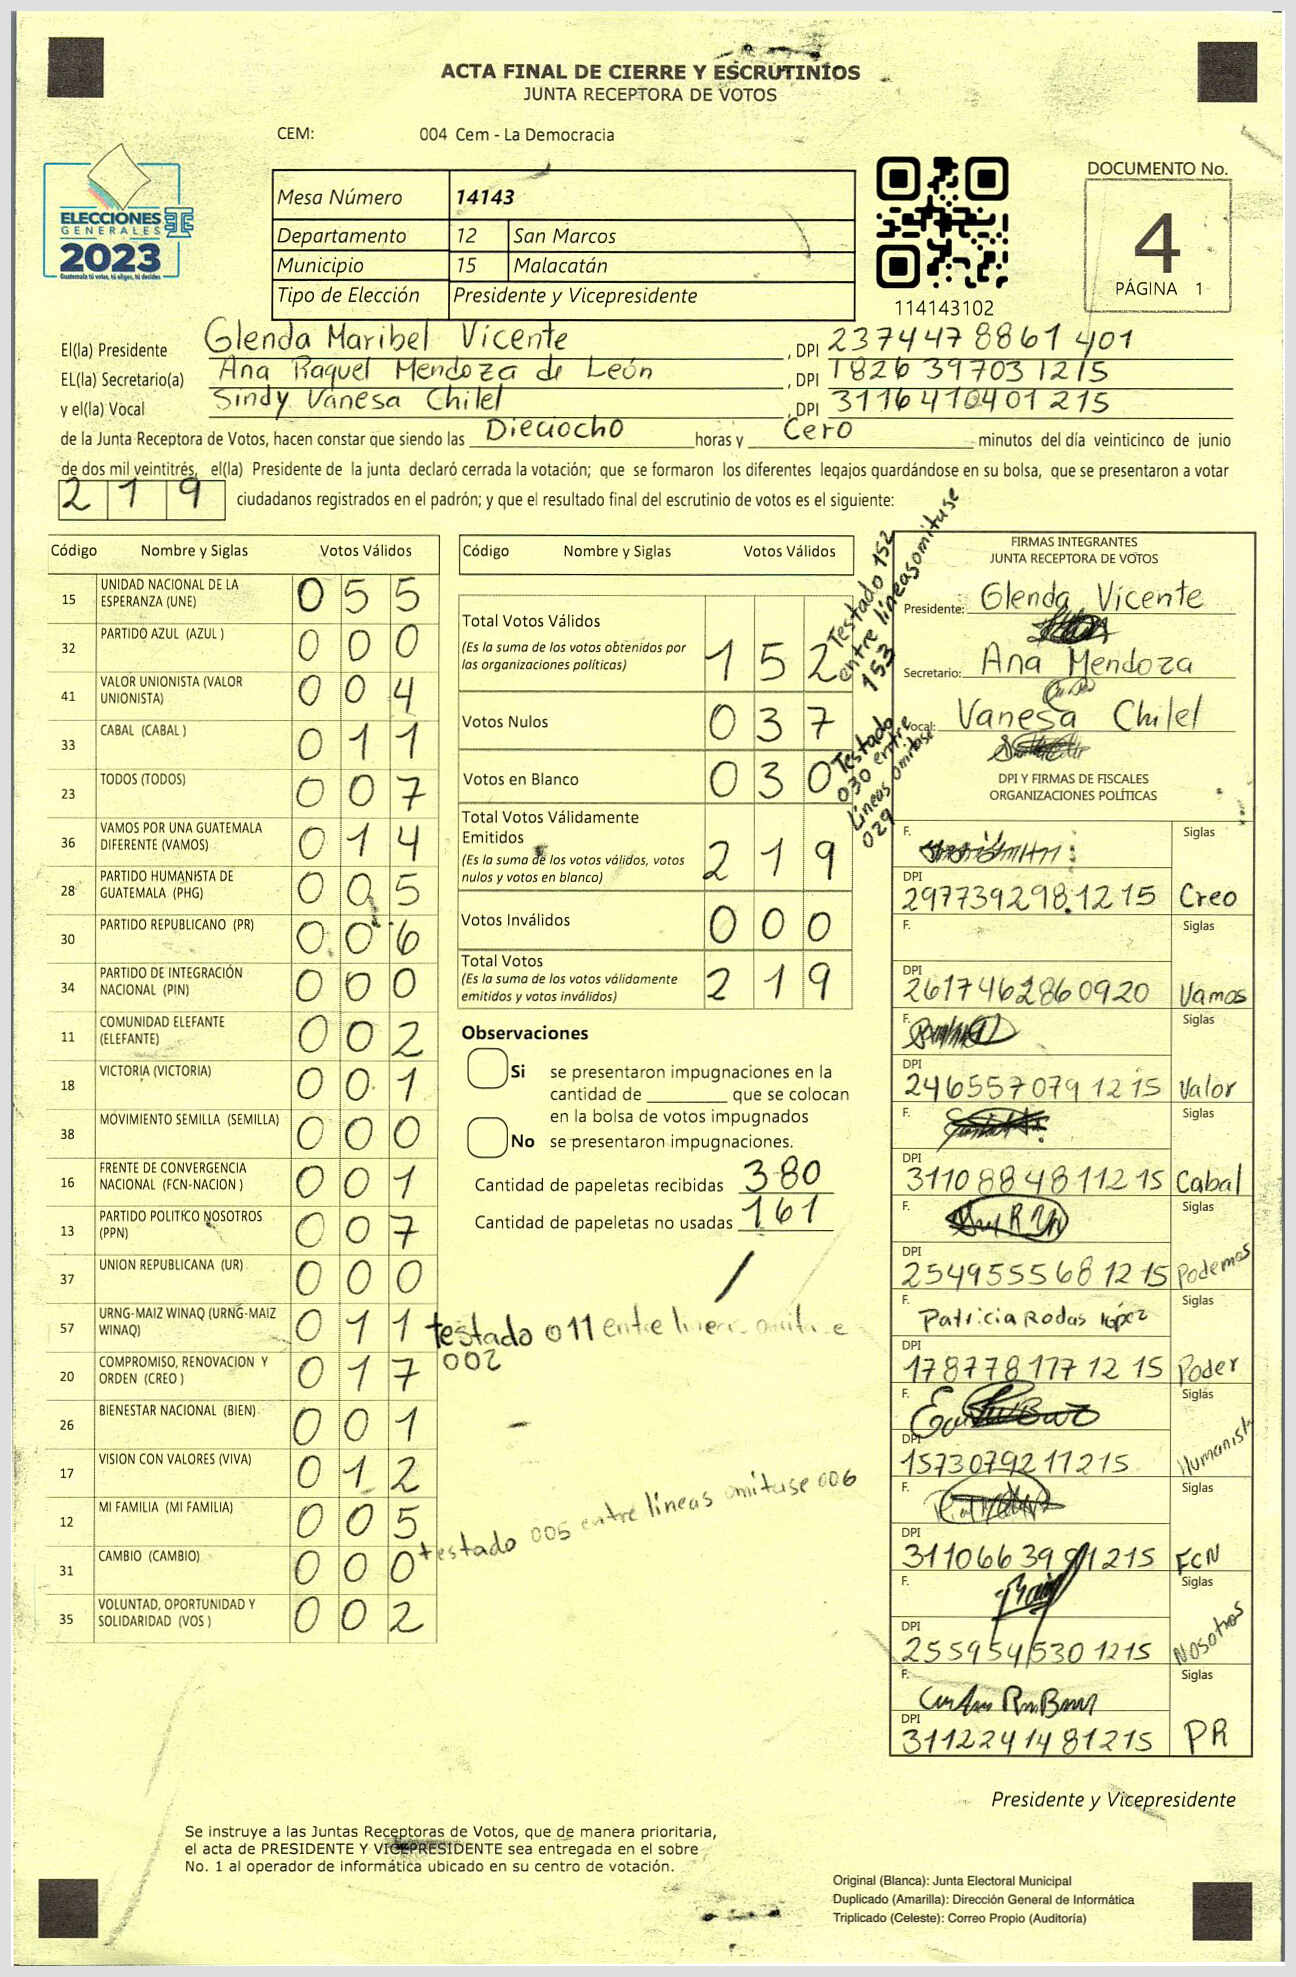 ACTA FINAL DE CIERRE Y ESCRUTINIOS
JUNTA RECEPTORA DE VOTOS
CEM: 004 Cem - La Democracia
ELECCIONES
GENERALES
2023
Guatemala tú votas, tú eliges, tú decides
Mesa Número 14143
Departamento 12 San Marcos
Municipio 15 Malacatán
Tipo de Elección Presidente y Vicepresidente
114143102
DOCUMENTO No.
4
PÁGINA 1
El(la) Presidente Glenda Maribel Vicente , DPI 2374478861401
EL(la) Secretario(a) Ana Raquel Mendoza de León , DPI 1826397031215
y el(la) Vocal Sindy Vanesa Chilel , DPI 3116410401215
de la Junta Receptora de Votos, hacen constar que siendo las Dieciocho horas y Cero minutos del día veinticinco de junio
de dos mil veintitrés, el(la) Presidente de la junta declaró cerrada la votación; que se formaron los diferentes legajos guardándose en su bolsa, que se presentaron a votar
219 ciudadanos registrados en el padrón; y que el resultado final del escrutinio de votos es el siguiente:
Código Nombre y Siglas Votos Válidos
15 UNIDAD NACIONAL DE LA ESPERANZA (UNE) 055
32 PARTIDO AZUL (AZUL ) 000
41 VALOR UNIONISTA (VALOR UNIONISTA) 004
33 CABAL (CABAL ) 011
23 TODOS (TODOS) 007
36 VAMOS POR UNA GUATEMALA DIFERENTE (VAMOS) 014
28 PARTIDO HUMANISTA DE GUATEMALA (PHG) 005
30 PARTIDO REPUBLICANO (PR) 006
34 PARTIDO DE INTEGRACIÓN NACIONAL (PIN) 000
11 COMUNIDAD ELEFANTE (ELEFANTE) 002
18 VICTORIA (VICTORIA) 001
38 MOVIMIENTO SEMILLA (SEMILLA) 000
16 FRENTE DE CONVERGENCIA NACIONAL (FCN-NACION ) 001
13 PARTIDO POLITICO NOSOTROS (PPN) 007
37 UNION REPUBLICANA (UR) 000
57 URNG-MAIZ WINAQ (URNG-MAIZ WINAQ) 011 testado 011 entre lineas omitase
002
20 COMPROMISO, RENOVACION Y ORDEN (CREO ) 017
26 BIENESTAR NACIONAL (BIEN) 001
17 VISION CON VALORES (VIVA) 012
12 MI FAMILIA (MI FAMILIA) 005 testado 005 entre lineas omituse 006
31 CAMBIO (CAMBIO) 000
35 VOLUNTAD, OPORTUNIDAD Y SOLIDARIDAD (VOS ) 002
Código Nombre y Siglas Votos Válidos
Total Votos Válidos
(Es la suma de los votos obtenidos por las organizaciones políticas) 152
Testado 152
entre lineas omituse
153
Votos Nulos 037
Votos en Blanco 030
Testado
030 entre
lineas omitase
029
Total Votos Válidamente Emitidos
(Es la suma de los votos válidos, votos nulos y votos en blanco) 219
Votos Inválidos 000
Total Votos
(Es la suma de los votos válidamente emitidos y votos inválidos) 219
Observaciones
Si se presentaron impugnaciones en la
cantidad de ________ que se colocan
en la bolsa de votos impugnados
No se presentaron impugnaciones.
Cantidad de papeletas recibidas 380
Cantidad de papeletas no usadas 161
FIRMAS INTEGRANTES
JUNTA RECEPTORA DE VOTOS
Presidente: Glenda Vicente
Secretario: Ana Mendoza
Vocal: Vanesa Chilel
DPI Y FIRMAS DE FISCALES
ORGANIZACIONES POLÍTICAS
F. Siglas
DPI 2977392981215 Creo
F. Siglas
DPI 2617462860920 Vamos
F. Siglas
DPI 2465570791215 Valor
F. Siglas
DPI 3110884811215 Cabal
F. Siglas
DPI 2549555681215 Podemos
F. Patricia Rodas López Siglas
DPI 1787781771215 Poder
F. Siglas
DPI 1573079211215 Humanista
F. Siglas
DPI 3110663991215 FCN
F. Siglas
DPI 2559545301215 Nosotros
F. Siglas
DPI 3112241481215 PR
Presidente y Vicepresidente
Se instruye a las Juntas Receptoras de Votos, que de manera prioritaria,
el acta de PRESIDENTE Y VICEPRESIDENTE sea entregada en el sobre
No. 1 al operador de informática ubicado en su centro de votación.
Original (Blanca): Junta Electoral Municipal
Duplicado (Amarilla): Dirección General de Informática
Triplicado (Celeste): Correo Propio (Auditoría)